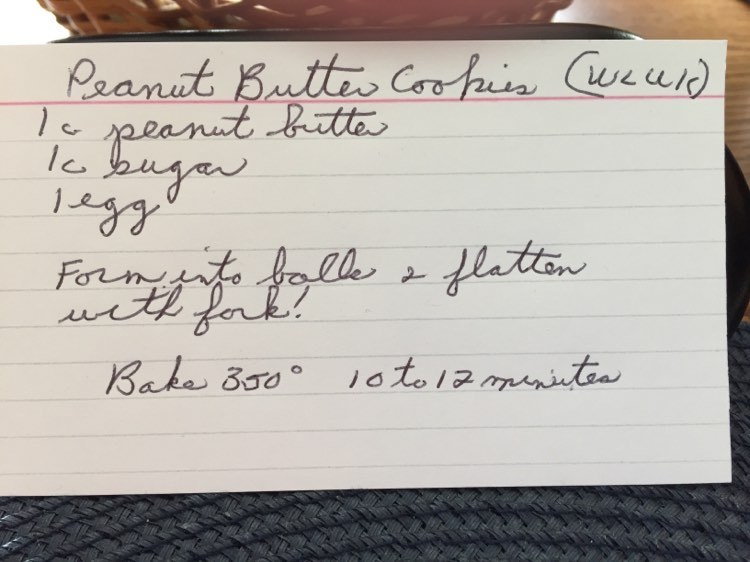 Peanut Butter Cookies
1c peanut butter
1c sugar
1 egg
Form into balls & flatten
with fork!
Bake 350° 10 to 12 minutes